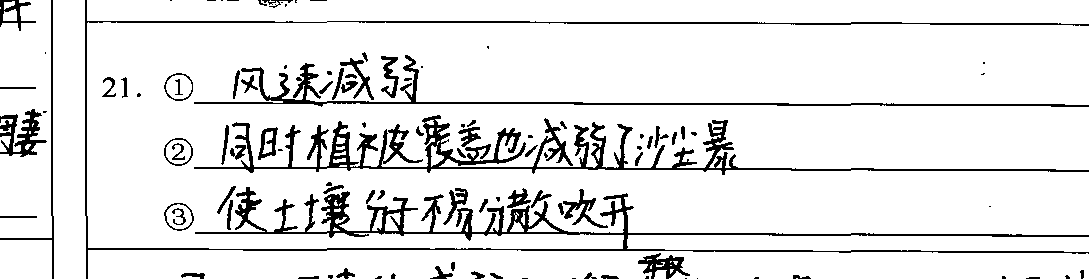 21. ① 风速减弱
② 同时植被覆盖也减弱了沙尘暴
③ 使土壤分子不易分散吹开